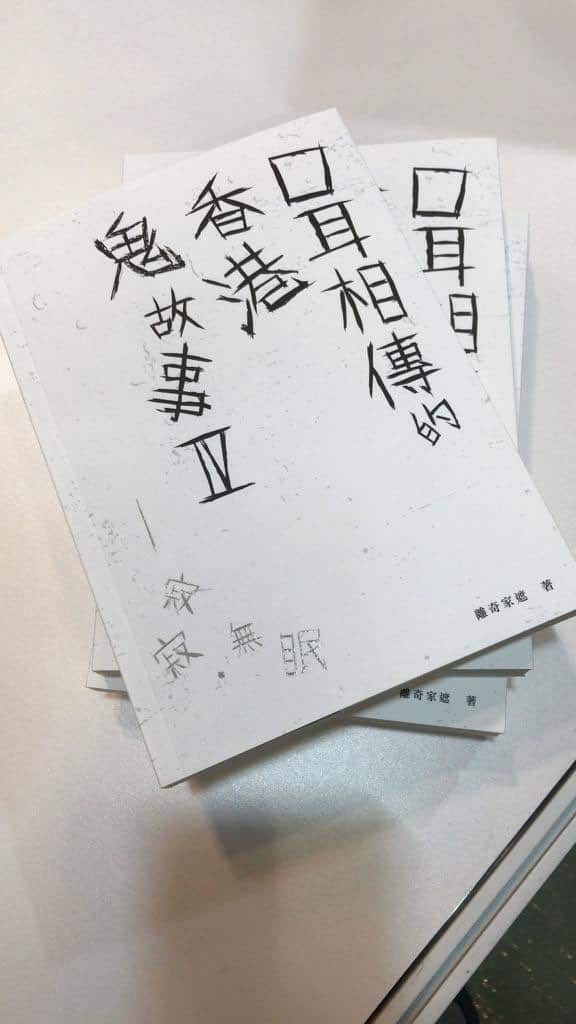 口耳相傳的
香港
鬼故事IV
一寂寂無眠
離奇家遮 著
口耳
離奇家遮 著